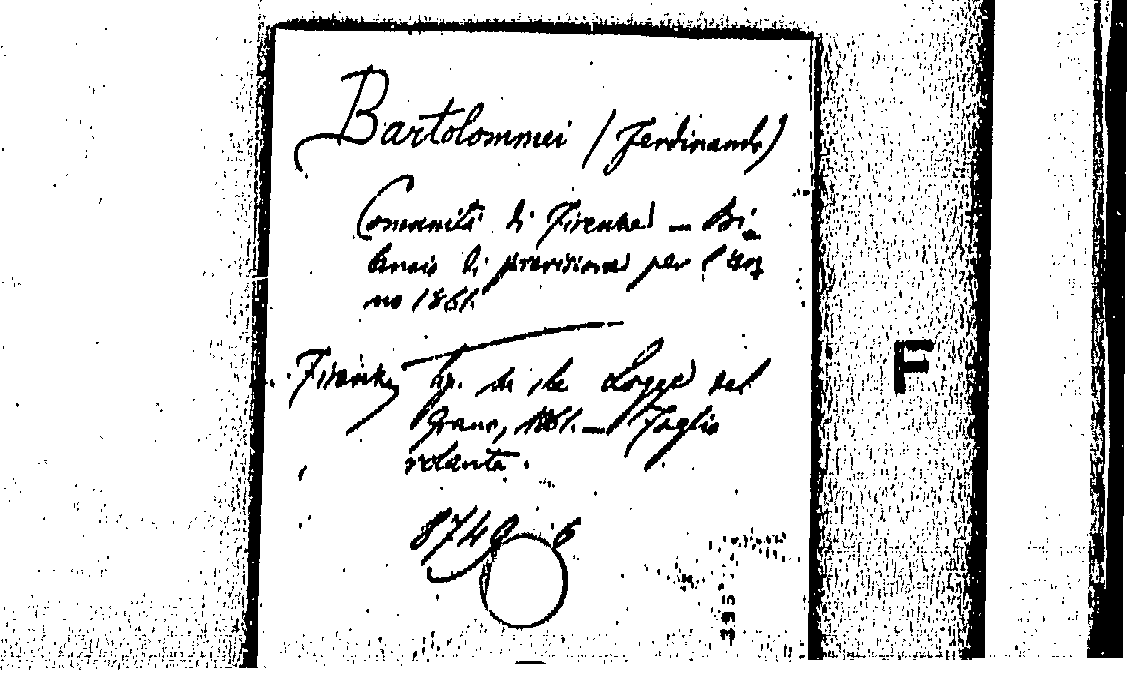 Bartolommei (Ferdinando)
Comunità di Firenze _ Bi_
lancio di previsione per l'an
no 1861.
Firenze, tip. di
Logge del
Grano, 1861. _ Foglio
volante.
8749 6
F
395